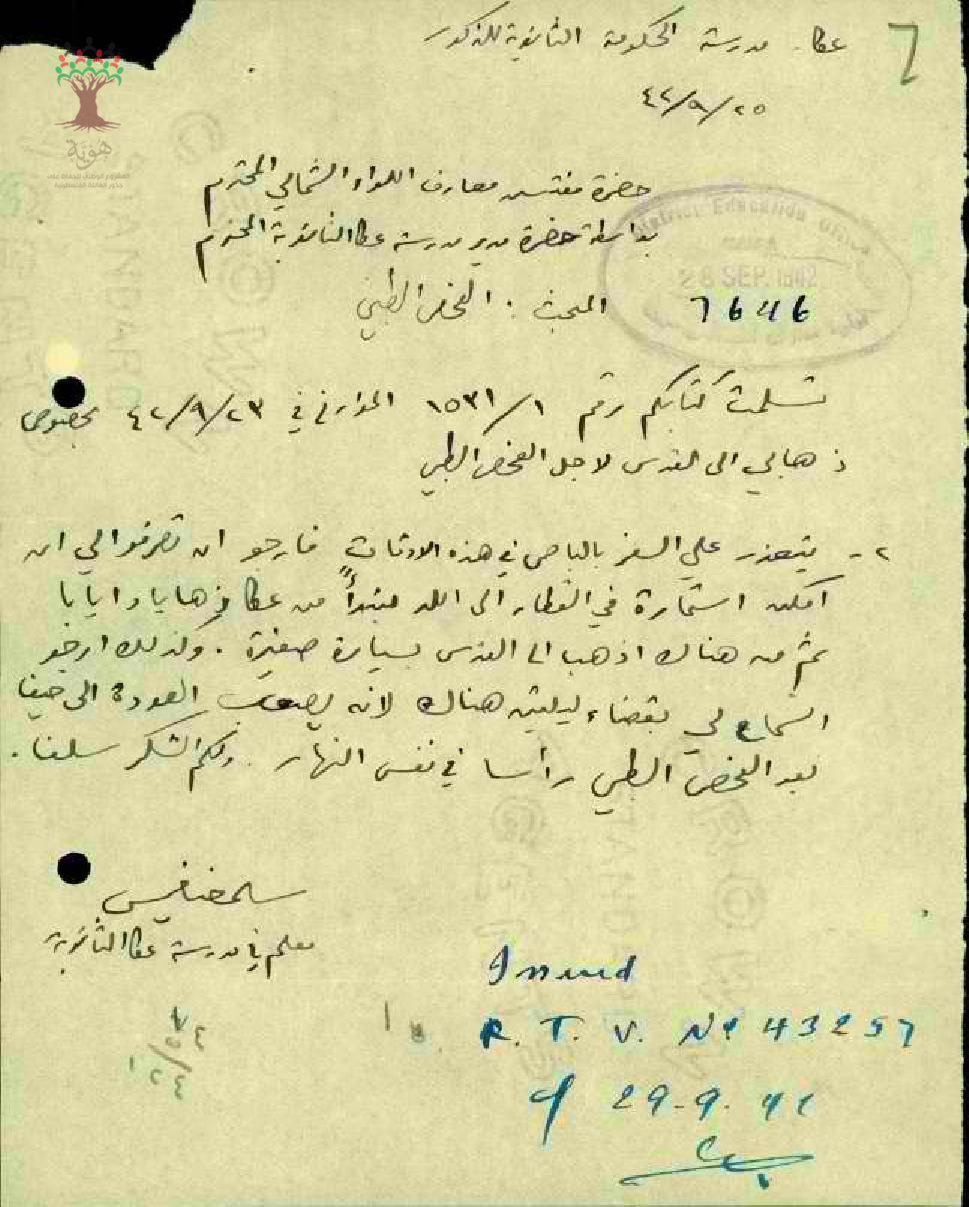 عكا. مدرسة الحكومة الثانوية للذكور
٢٥/٩/٤٢
حضرة مفتش معارف اللواء الشمالي المحترم
بواسطة حضرة مدير مدرسة عكا الثانوية المحترم
District Education Office
28 SEP. 1942
7646
المبحث : الفحص الطبي
تسلمت كتابكم رقم ١٥٣١/١ المؤرخ في ٢٣/٩/٤٢ بخصوص
ذهابي الى القدس لاجل الفحص الطبي
٢- يتعذر علي السفر بالباص في هذه الاوقات فارجو ان تصرفوا لي ان
امكن استمارة في القطار الى اللد مبتدأً من عكا ذهابا وايابا
ثم من هناك اذهب الى القدس بسيارة صغيرة . ولذلك ارجو
السماح لي بقضاء ليلتين هناك لانه يصعب العودة الى حيفا
بعد الفحص الطبي رأسا في نفس النهار . ولكم الشكر سلفا .
معلم في مدرسة عكا الثانوية
Issued
R. T. V. No 43257
of 29-9-42
هوية